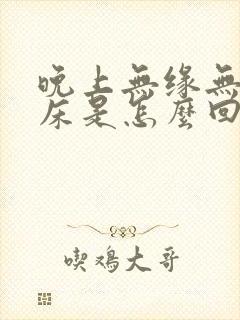 晚上無缘無
床是怎麼回
喫鸡大哥